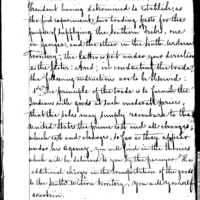 President having determined to establish, as
the first experiment, two trading posts for the
purpose of supplying the Southern Tribes, one
in Georgia, and the other in the South Western
Territory, the latter is put under your direction
as the factor. And in conducting the trade,
the following instructions are to be observed:
1st The principle of the trade is to furnish the
Indians with goods at such moderate prices,
that the sales may simply reimburse to the
United States the prime cost and all charges,
prime cost and charges, so far as they appear
under his agency, you will find in the invoices
which will be delivered to you by the purveyor. The
additional charge in the transportation of the goods
to the South Western Territory, you will yourself
ascertain.